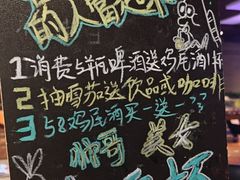 的人
1 消费5瓶啤酒送鸡尾酒1杯
2 抽雪茄送饮品或咖啡
3 58鸡尾酒买一送一?
帅哥 美女
杯